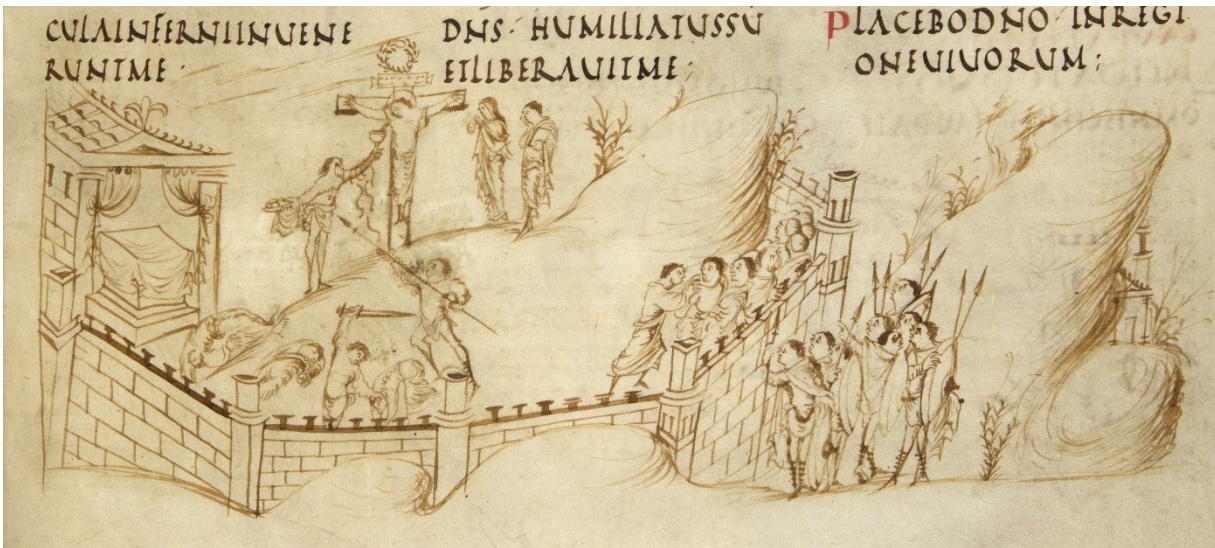 CULAINFERNIINUENE
RUNTME·
DNS· HUMILIATUSSU
ETLIBERAUITME;
PLACEBODNO· INREGI
ONEUIUORUM;